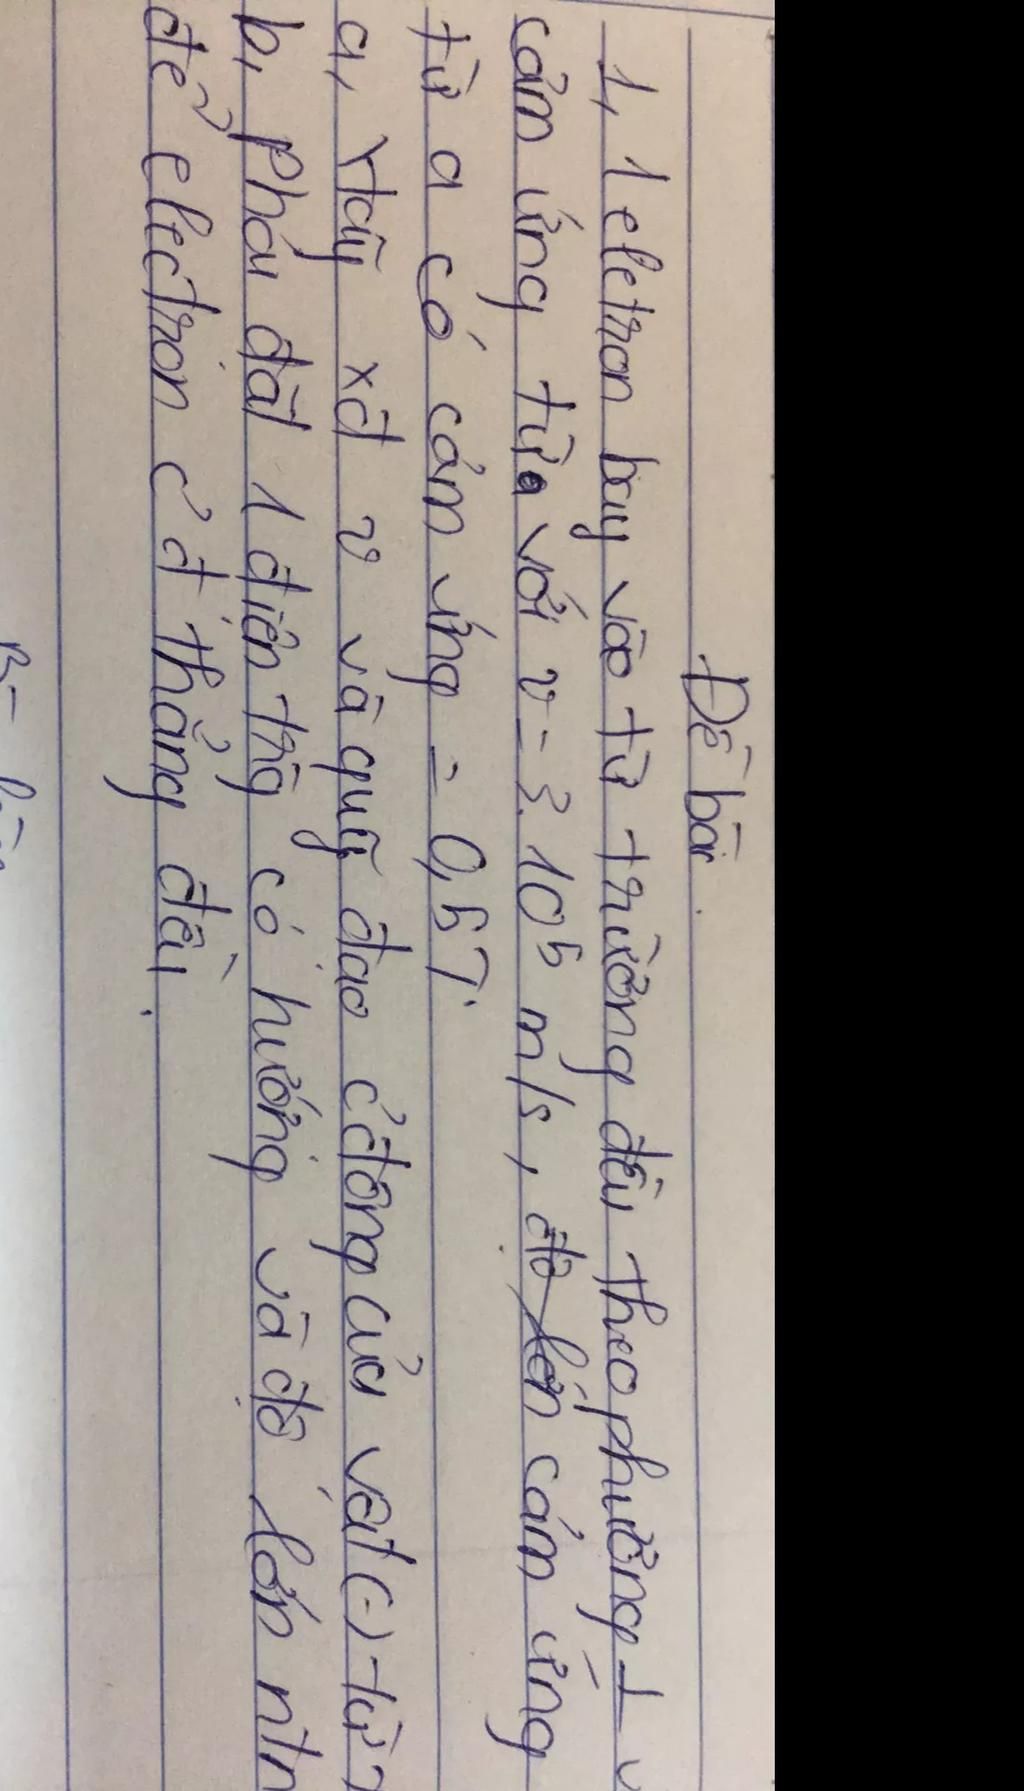 Đề bài.
1, 1 eletron bay vào từ trường đều theo phương ⊥ v
cảm ứng từ a với v = 3.10⁵ m/s, độ lớn cảm ứng
từ a có cảm ứng = 0,5T.
a, Hãy xđ v và quỹ đạo c'động của vật (-) từ
b, Phải đặt 1 điện trg có hướng và độ lớn ntn
để electron c'đ thẳng đều.